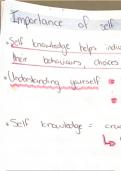 Importance of self
• Self knowledge helps indiv
their behaviours, choices
• Understanding yourself
• Self knowledge = cruc